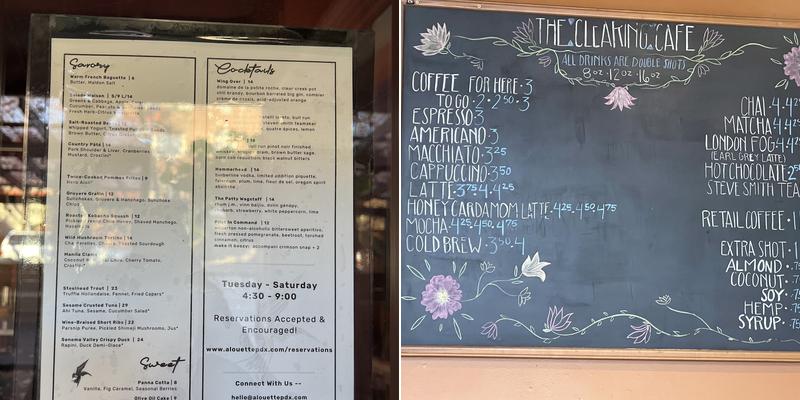 Savory
Warm French Baguette | 6
Butter, Maldon Salt
Salade Maison | 5/9 L/14
Greens & Cabbage, Apple,
Cucumber,
Fresh Herb-Citrus
Salt-Roasted
Whipped Yogurt, Toasted
Brown Butter,
Country Pâté | 14
Pork Shoulder & Liver, Cranberries
Mustard, Crostini*
Twice-Cooked Pommes Frites | 9
Herb Aioli*
Gruyere Gratin | 13
Sunchokes, Gruyere & Manchego, Sunchoke
Chips
Roasted Kabocha Squash | 12
Chia Honey, Shaved Manchego,
Wild Mushroom
Toasted Sourdough
Manila Clams
Coconut Chive, Cherry Tomato,
Crostini*
Steelhead Trout | 23
Truffle Hollandaise, Fennel, Fried Capers*
Sesame Crusted Tuna | 29
Ahi Tuna, Sesame, Cucumber Salad*
Wine-Braised Short Ribs | 22
Parsnip Puree, Pickled Shimeji Mushrooms, Jus*
Sonoma Valley Crispy Duck | 24
Rapini, Duck Demi-Glace*
Sweet
Panna Cotta | 8
Vanilla, Fig Caramel, Seasonal Berries
Olive Oil Cake | 9
Cocktails
Wing Over | 14
domaine de la petite rocte, clear creek pot
still brandy, bourbon barreled big gin, combier
creme de cassis, acid-adjusted orange
quatre épices, lemon
pinot noir finished
brown butter sage,
black walnut bitters
Hammerhead | 14
vodka, limited addition piquette,
falernum, plum, lime, fleur de sel, oregon spirit
absinthe
The Patty Wagstaff | 14
rhum j.m., vinn baijiu, dolin génépy,
rhubarb, strawberry, white peppercorn, lime
Pilot In Command | 12
wilderton non-alcoholic bittersweet aperitivo,
fresh pressed pomegranate, beetroot, torched
cinnamon, citrus
make it boozy: accompani crimson snap + 2
Tuesday - Saturday
4:30 - 9:00
Reservations Accepted &
Encouraged!
www.alouettepdx.com/reservations
Connect With Us --
hello@alouettepdx.com
THE CLEARING CAFE
ALL DRINKS ARE DOUBLE SHOTS
8oz·12oz·16oz
COFFEE FOR HERE·3
TO GO·2·2.50·3
ESPRESSO 3
AMERICANO·3
MACCHIATO·3.25
CAPPUCCINO·3.50
LATTE·3.75·4·4.25
HONEY CARDAMOM LATTE·4.25·4.50·4.75
MOCHA·4.25·4.50·4.75
COLD BREW·3.50·4
CHAI·4·4.2
MATCHA 4·4.2
LONDON FOG·4·4.2
(EARL GREY LATTE)
HOT CHOCOLATE·2
STEVE SMITH TEA
RETAIL COFFEE·1
EXTRA SHOT·1
ALMOND·.7
COCONUT·.7
SOY·
HEMP·.7
SYRUP·.7